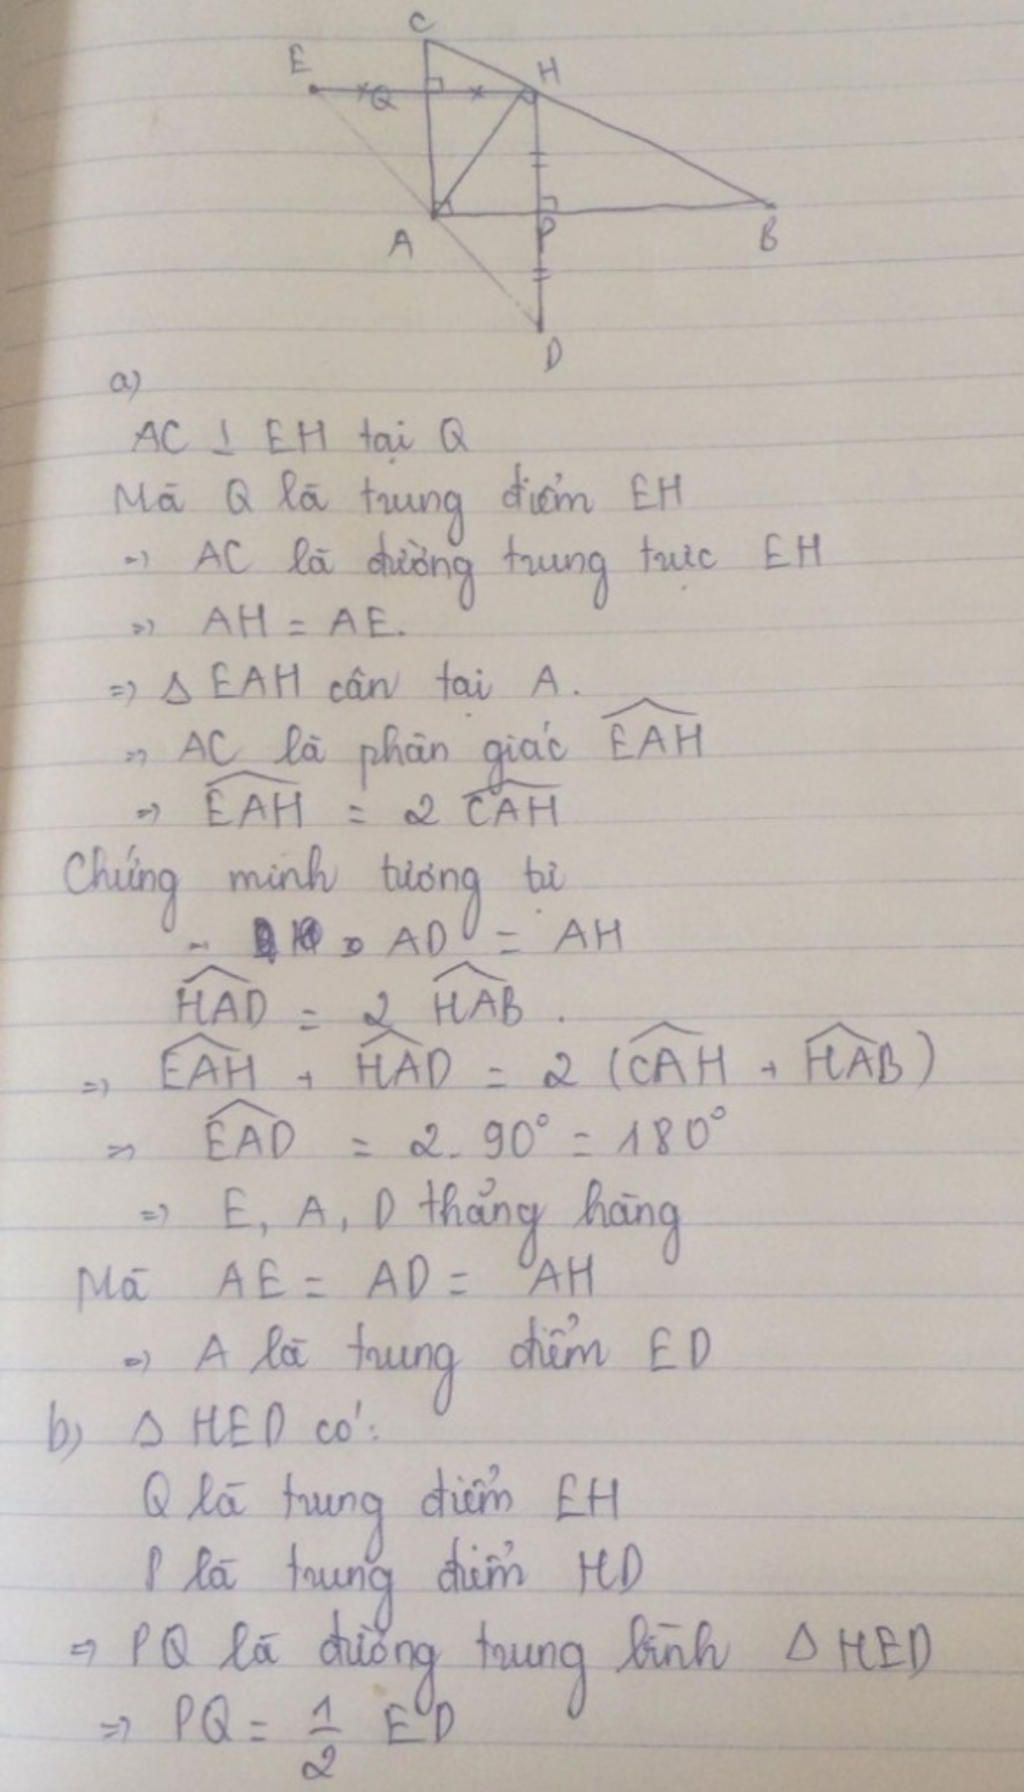 C
E
H
Q
A
P
B
D
a)
AC ⊥ EH tại Q
Mà Q là trung điểm EH
=> AC là đường trung trực EH
=> AH = AE.
=> Δ EAH cân tại A.
=> AC là phân giác \widehat{EAH}
=> \widehat{EAH} = 2 \widehat{CAH}
Chứng minh tương tự
AD = AH
\widehat{HAD} = 2 \widehat{HAB} .
=> \widehat{EAH} + \widehat{HAD} = 2 (\widehat{CAH} + \widehat{HAB})
=> \widehat{EAD} = 2. 90° = 180°
=> E, A, D thẳng hàng
Mà AE = AD = AH
=> A là trung điểm ED
b) Δ HED có:
Q là trung điểm EH
P là trung điểm HD
=> PQ là đường trung bình Δ HED
=> PQ = 1/2 ED